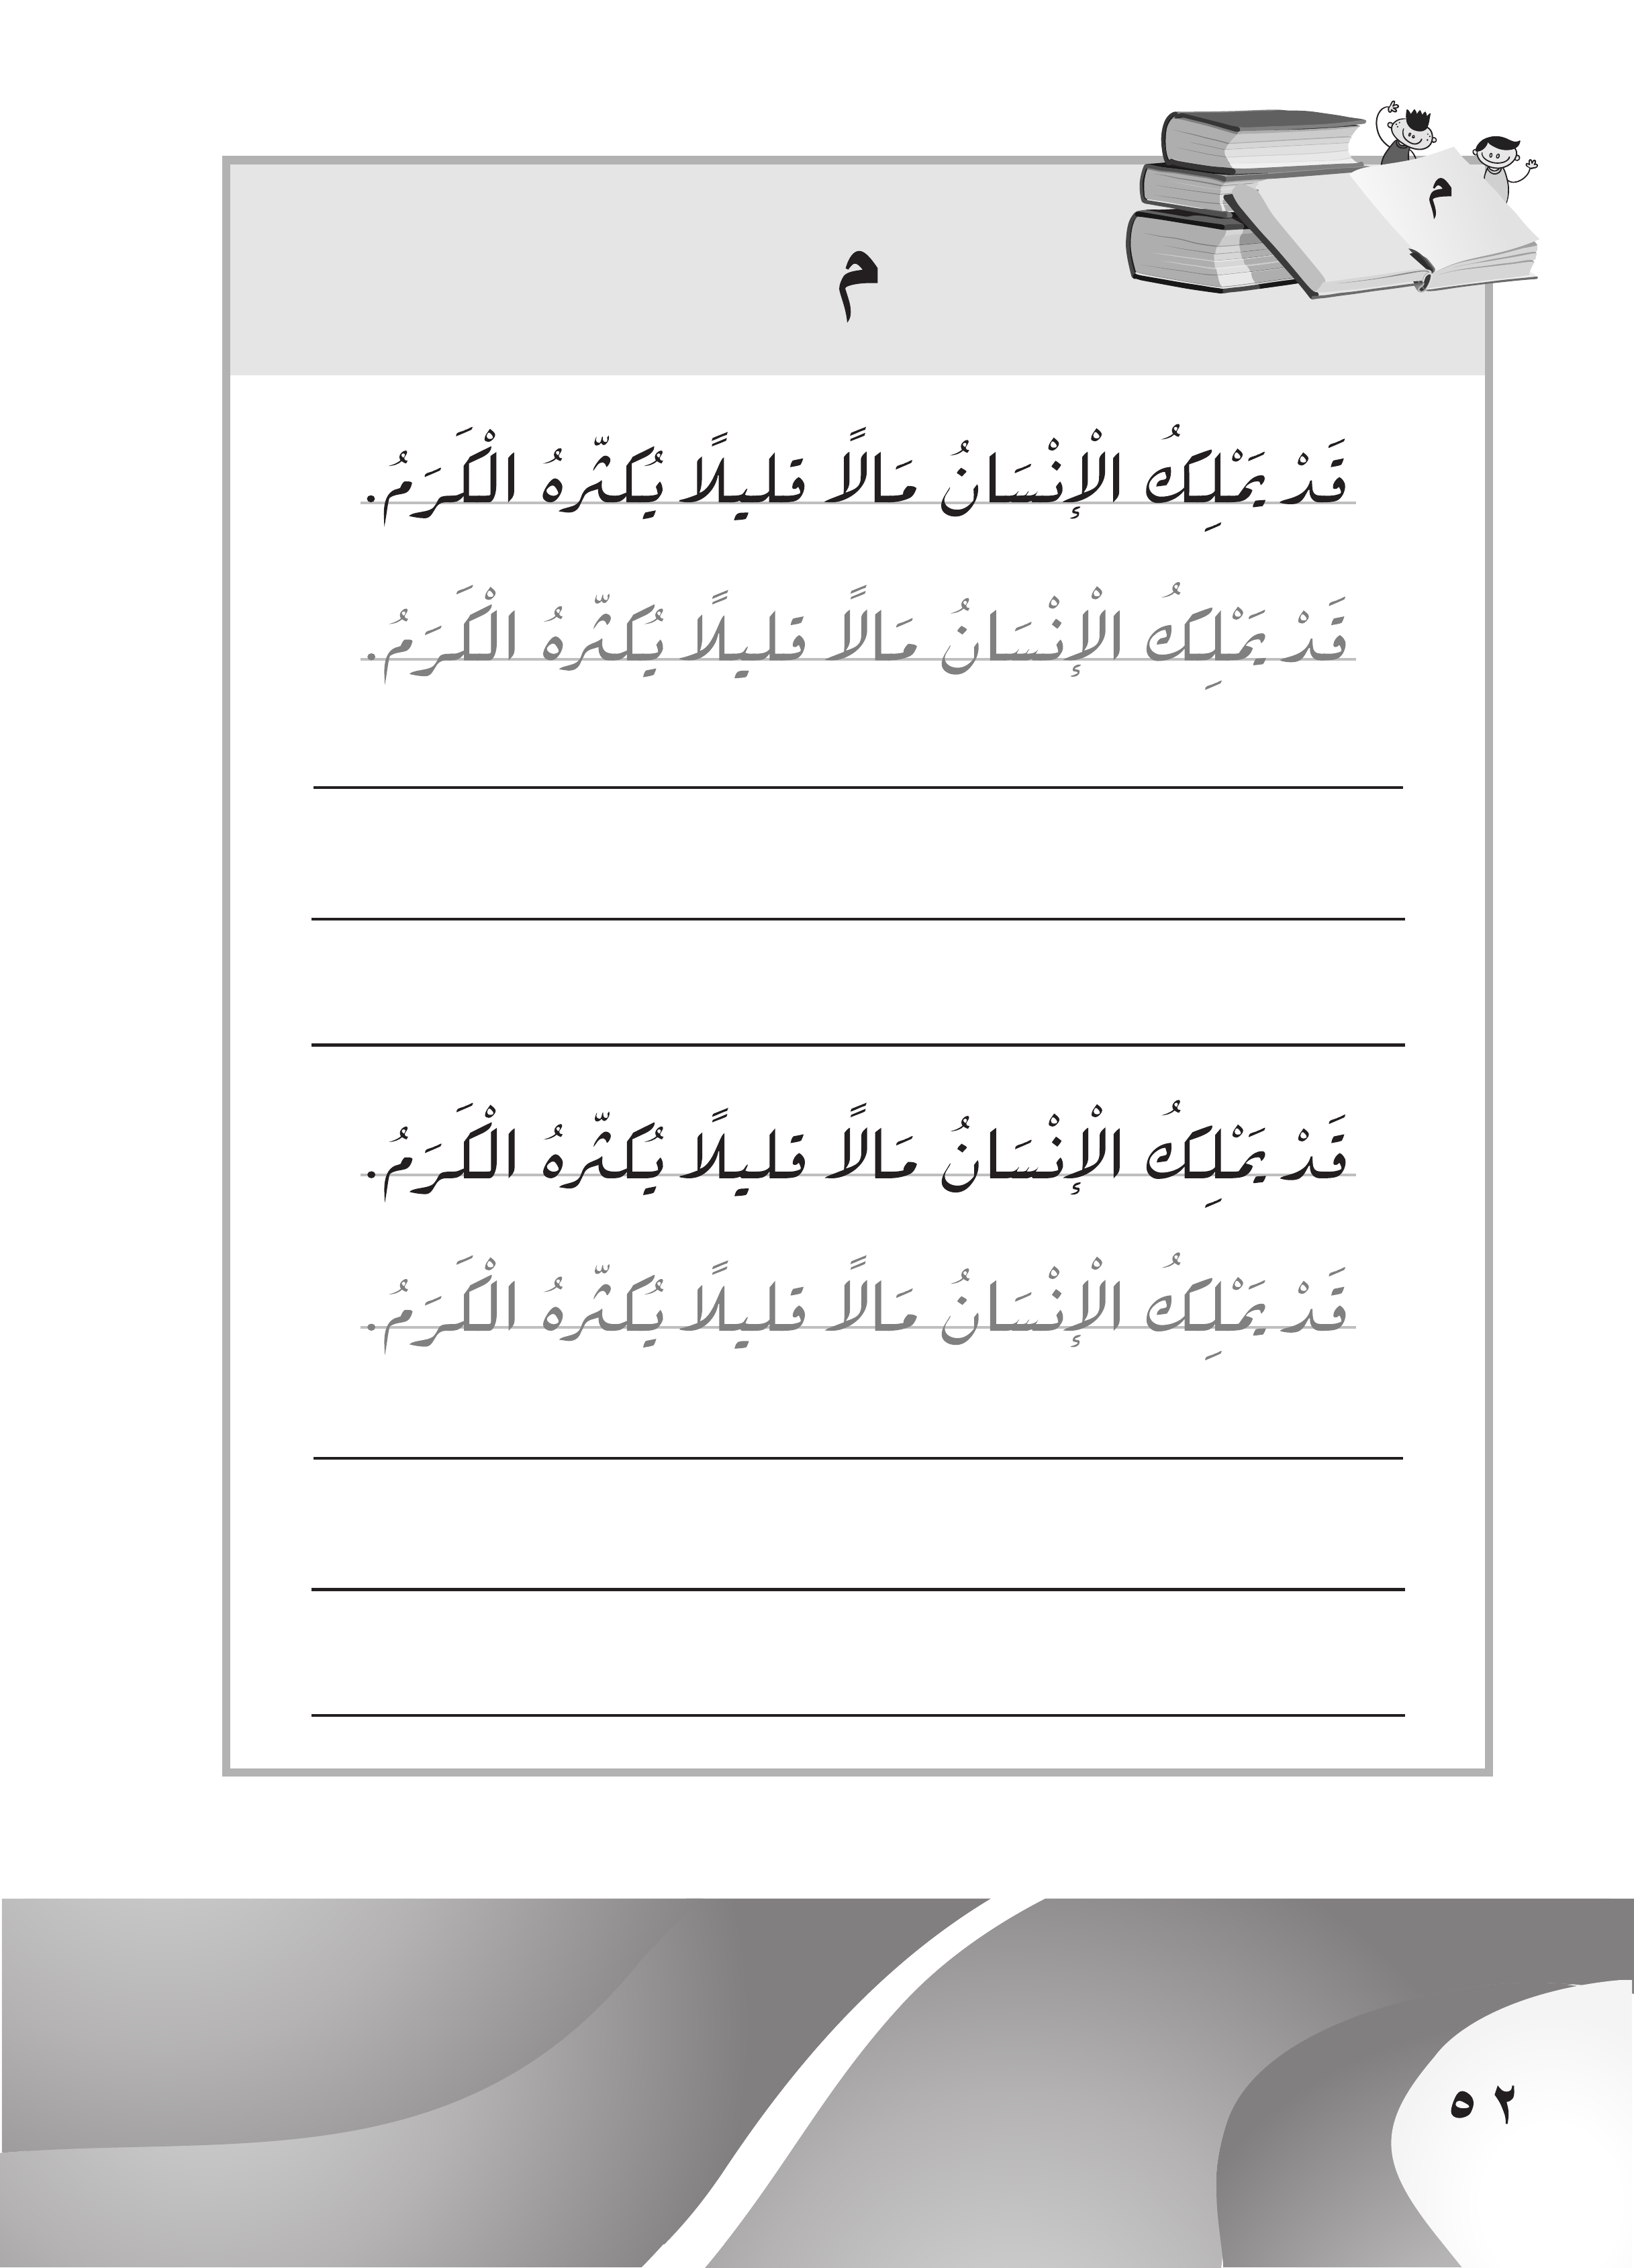 م
م
قَدْ يَمْلِكُ الْإِنْسَانُ مَالًا قَلِيلًا يُكثّرهُ الْكَرَمُ.
قَدْ يَمْلِكُ الْإِنْسَانُ مَالًا قَلِيلًا يُكثّرهُ الْكَرَمُ.
قَدْ يَمْلِكُ الْإِنْسَانُ مَالًا قَلِيلًا يُكثّرهُ الْكَرَمُ.
قَدْ يَمْلِكُ الْإِنْسَانُ مَالًا قَلِيلًا يُكثّرهُ الْكَرَمُ.
٥٢